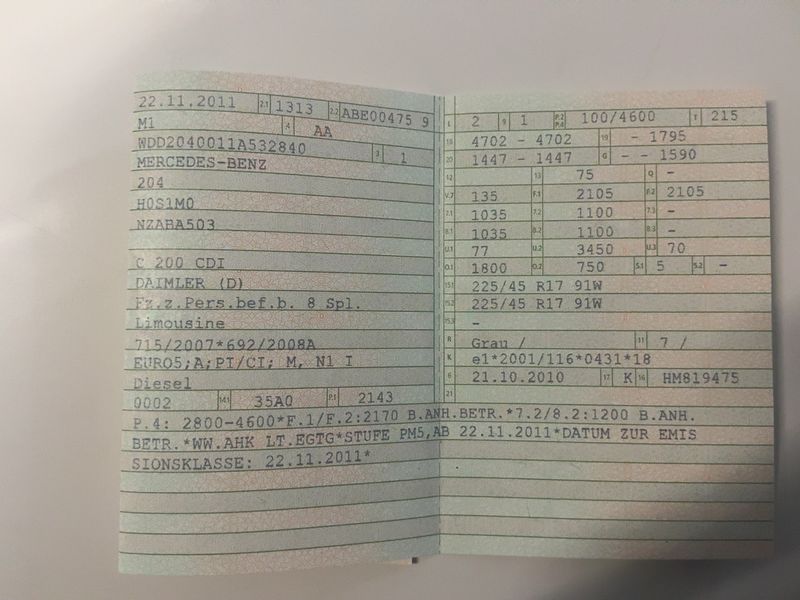 22.11.2011 2.1 1313 2.2 ABE00475 9
M1 4 AA
WDD2040011A532840 3 1
MERCEDES-BENZ
204
H0S1M0
NZABA503
C 200 CDI
DAIMLER (D)
Fz.z.Pers.bef.b. 8 Spl.
Limousine
715/2007*692/2008A
EURO5;A;PI/CI; M, N1 I
Diesel
0002 14.1 35A0 P.1 2143
L 2 9 1 P.2 P.4 100/4600 T 215
18 4702 - 4702 19 - 1795
20 1447 - 1447 G - - 1590
12 13 75 Q -
V.7 135 F.1 2105 F.2 2105
7.1 1035 7.2 1100 7.3 -
8.1 1035 8.2 1100 8.3 -
U.1 77 U.2 3450 U.3 70
O.1 1800 O.2 750 S.1 5 S.2 -
15.1 225/45 R17 91W
15.2 225/45 R17 91W
15.3 -
R Grau / 11 7 /
K e1*2001/116*0431*18
6 21.10.2010 17 K 16 HM819475
21
P.4: 2800-4600*F.1/F.2:2170 B.ANH.BETR.*7.2/8.2:1200 B.ANH.
BETR.*WW.AHK LT.EGTG*STUFE PM5,AB 22.11.2011*DATUM ZUR EMIS
SIONSKLASSE: 22.11.2011*